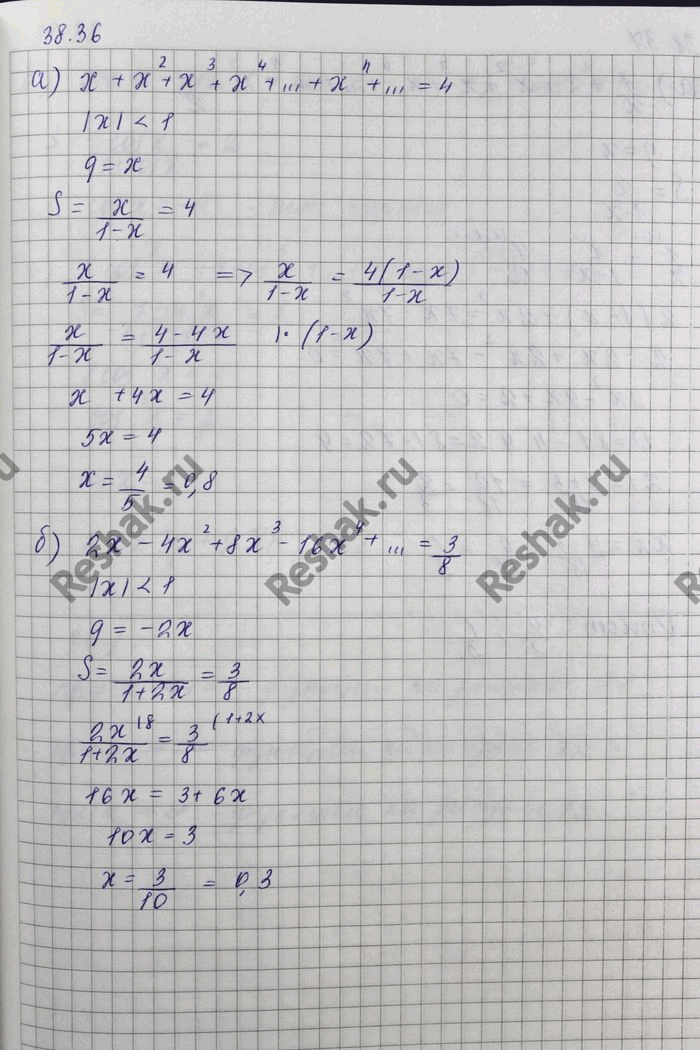 38.36
а) x + x² + x³ + x⁴ + ... + xⁿ + ... = 4
|x| < 1
q = x
S = x/(1-x) = 4
x/(1-x) = 4 => x/(1-x) = 4(1-x)/(1-x)
x/(1-x) = (4-4x)/(1-x) |· (1-x)
x + 4x = 4
5x = 4
x = 4/5 = 0,8
б) 2x - 4x² + 8x³ - 16x⁴ + ... = 3/8
|x| < 1
q = -2x
S = 2x/(1+2x) = 3/8
2x/(1+2x) |8 = 3/8 (1+2x
16x = 3 + 6x
10x = 3
x = 3/10 = 0,3
Reshak.ru
Reshak.ru
Reshak.ru